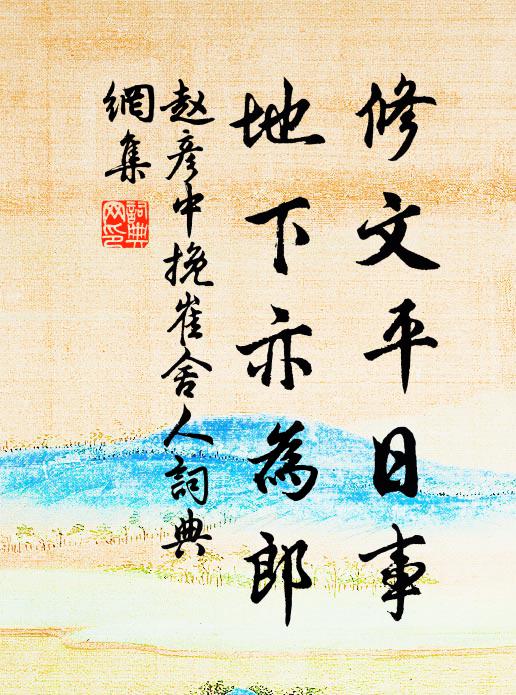 修文平日事
地下亦為郎
赵彦中挽崔舍人詞典
網集
詞典
网印